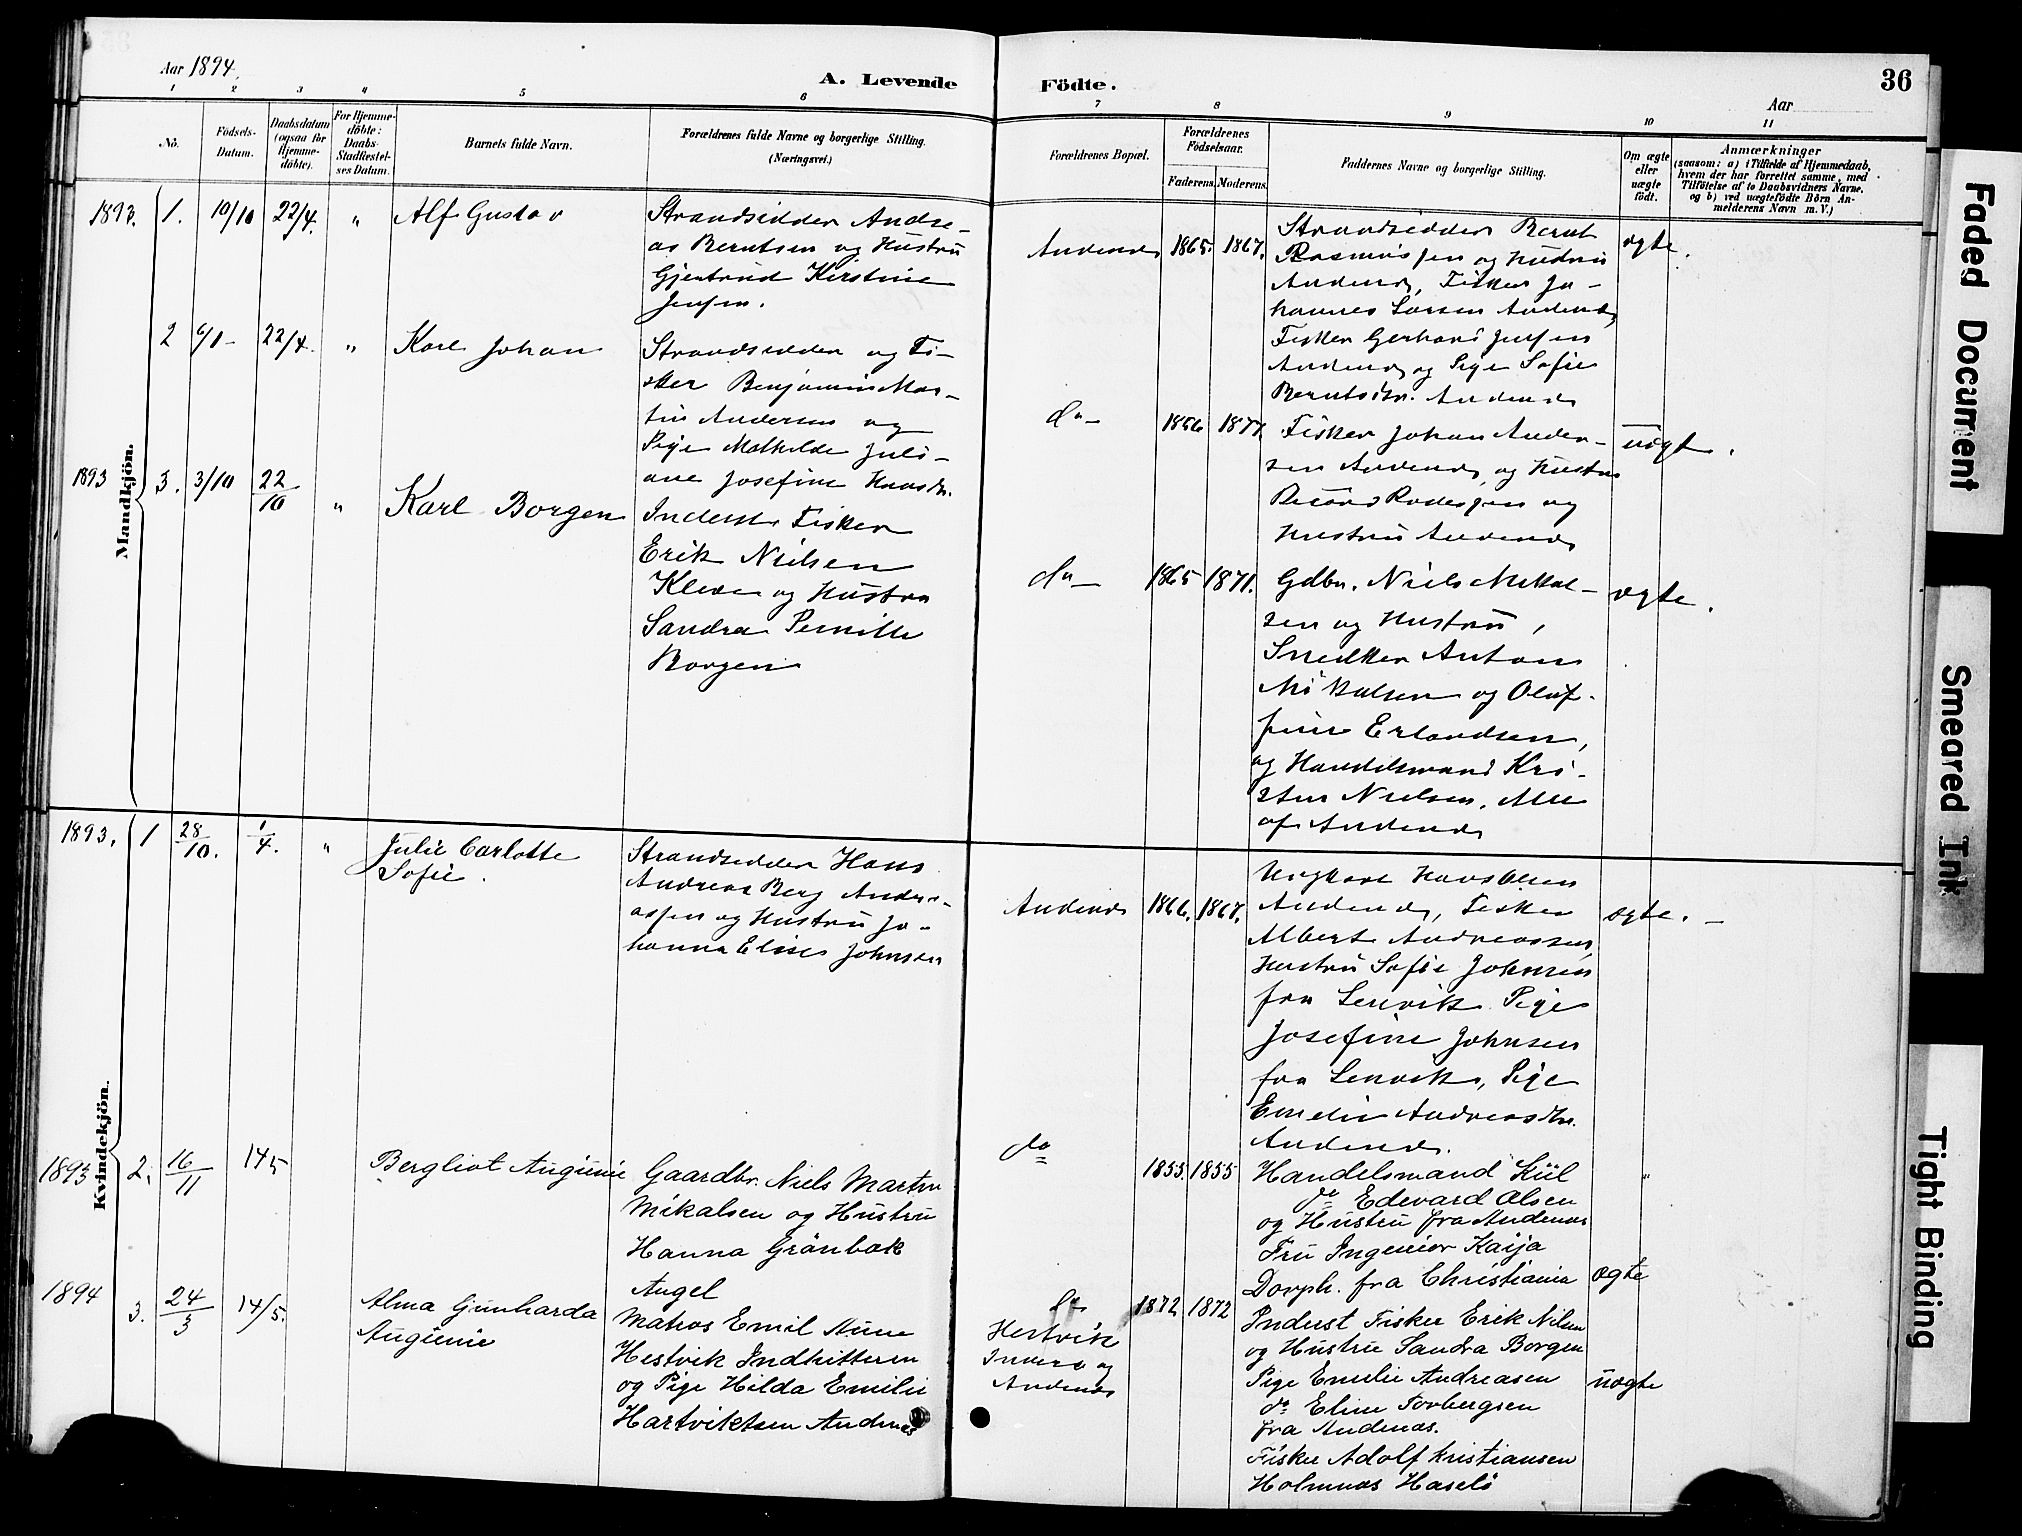 Aar 1894.
A. Levende
Födte.
36
Aar
1 2 3 4 5 6 7 8 9 10 11
No.
Födsels-
Datum.
Daabsdatum
(ogsaa for
Hjemme-
döbte).
For Hjemme-
döbte:
Daabs-
Stadfæstel-
ses Datum.
Barnets fulde Navn.
Forældrenes fulde Navne og borgerlige Stilling.
(Næringsvei.)
Forældrenes Bopæl.
Forældrenes
Födselsaar.
Faderens.
Moderens.
Faddernes Navne og borgerlige Stilling.
Om ægte
eller
uægte
födt.
Anmærkninger
(saasom: a) i Tilfælde af Hjemmedaab,
hvem der har forrettet samme, med
Tilföielse af to Daabsvidners Navne.
og b) ved uægtefödte Börn An-
melderens Navn m. V.)
Mandkjön.
1893. 1. 10/10 22/4. " Alf Gustav
Strandsidder Andre-
as Berntsen og Hustru
Gjertrud Kirstine
Jensen.
Andenæs 1865. 1867.
Strandsidder Bernt
Rasmussen og Hustru
Andenæs, Fisker Jo-
hannes Larsen Andenæs,
Fisker Gerhard Jensen
Andenæs og Pige Sofie
Berntsdtr. Andenæs
ægte.
2 6/1 22/4. " Karl Johan
Strandsidder og Fi-
sker Benjamin Mar-
tin Andersen og
Pige Mathilde Juli-
ane Josefine Hansdtr.
do 1866 1877.
Fisker Johan Ander-
sen Andenæs og Hustru
og
Hustru Andenæs
uægte.
1893 3. 3/10 22/10 " Karl Borgen
Inderst Fisker
Erik Nielsen
og Hustru
Sandra Pernille
Borgen
do 1865 1871.
Gdbr. Niels Mikal-
sen og Hustru,
Snedker Anton
Mikalsen og Oluf-
fine Erlandsen,
og Handelsmand Kri-
sten Nielsen. Alle
af Andenæs
ægte.
Kvindekjön.
1893. 1 28/10. 1/4. " Julie Carlotte
Sofie.
Strandsidder Hans
Andreas Berg Andre-
assen og Hustru Jo-
hanna Elise Johnsen
Andenæs 1866. 1867.
Ungkarl Hans Olsen
Andenæs, Fisker
Albert Andreassen,
Hustru Sofie Johnsen
fra Lenvik Pige
Josefine Johnsen
fra Lenvik, Pige
Emelie Andreasdtr.
Andenæs.
ægte. -
1893 2. 16/11 14 5 Bergliot Augunie
Gaardbr. Niels Martin
Mikalsen og Hustru
Hanna Grönbæk
Angel
do 1855. 1855
Handelsmand Kiil
do Edevard Olsen
og Hustru fra Andenæs
Fru Ingeniör Kaija
Dorph. fra Christiania
"
ægte
1894 3. 24/3 14/5. Alma Gunharda
Augunie
Matros Emil Aune
Hestvik Indhitteren
og Pige Hilda Emilie
Hartviktsen Andenæs
do
Hestvik
og
Andenæs
1872 1872
Inderst Fisker Erik Nilsen
og Hustru Sandra Borgen
Pige Emelie Andreasen
do Eline Torbergsen
fra Andenæs.
Fisker Adolf Kristiansen
Holmnæs Haselö
uægte
Faded Document
Smeared Ink
Tight Binding